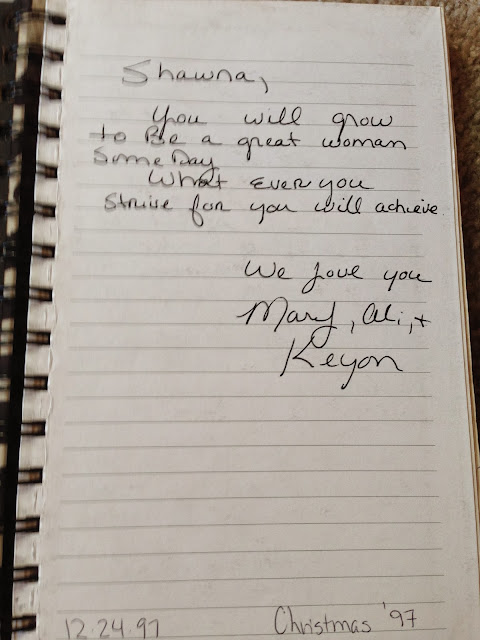 Shawna,
You will grow
to Be a great woman
Some Day
What ever you
strive for you will achieve.
We Love you
Mary, Ali, +
Keyon
12.24.97 Christmas '97